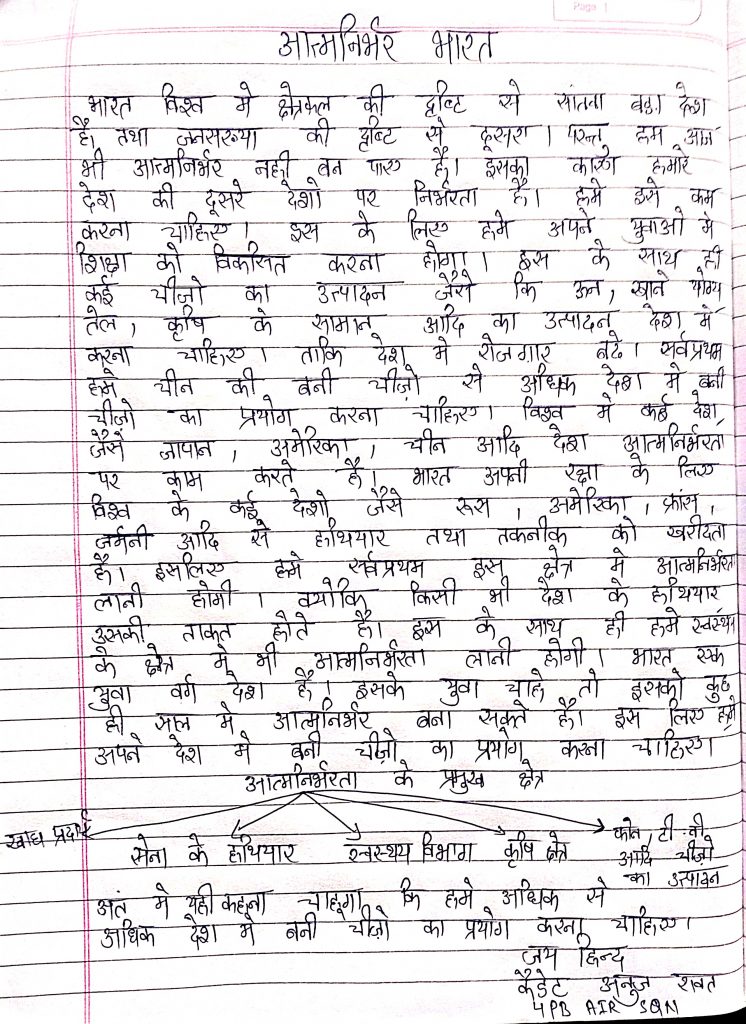 Page 1
आत्मनिर्भर भारत
भारत विश्व मे क्षेत्रफल की दृष्टि से सांतवा बड़ा देश
है, तथा जनसंख्या की दृष्टि से दूसरा । परन्तु हम आज
भी आत्मनिर्भर नही बन पाए है। इसका कारण हमारे
देश की दूसरे देशो पर निर्भरता है। हमे इसे कम
करना चाहिए। इस के लिए हमे अपने युवाओ मे
शिक्षा को विकसित करना होगा। इस के साथ ही
कई चीजो का उत्पादन जैसे कि ऊन, खाने योग्य
तेल, कृषि के सामान आदि का उत्पादन देश में
करना चाहिए। ताकि देश मे रोजगार बढे। सर्वप्रथम
हमे चीन की बनी चीज़ो से अधिक देश मे बनी
चीज़ो का प्रयोग करना चाहिए। विश्व मे कई देश
जैसे जापान, अमेरिका, चीन आदि देश आत्मनिर्भरता
पर काम करते है। भारत अपनी रक्षा के लिए
विश्व के कई देशो जैसे रूस, अमेरिका, फ्रांस,
जर्मनी आदि से हथियार तथा तकनीक को खरीदता
है। इसलिए हमे सर्वप्रथम इस क्षेत्र मे आत्मनिर्भरता
लानी होगी। क्योकि किसी भी देश के हथियार
उसकी ताकत होते है। इस के साथ ही हमे स्वस्थय
के क्षेत्र मे भी आत्मनिर्भरता लानी होगी। भारत एक
युवा वर्ग देश है। इसके युवा चाहे तो इसको कुछ
ही साल मे आत्मनिर्भर बना सकते है। इस लिए हमे
अपने देश मे बनी चीज़ो का प्रयोग करना चाहिए।
आत्मनिर्भरता के प्रमुख क्षेत्र
खाद्य प्रदार्थ
सेना के हथियार
स्वस्थय विभाग
कृषि क्षेत्र
फोन, टी वी
आदि चीज़ो
का उत्पादन
अतं मे यही कहूना चाहूगा कि हमे अधिक से
अधिक देश मे बनी चीज़ो का प्रयोग करना चाहिए।
जय हिन्द
कैडेट अनुज रावत
4 PB AIR SQN